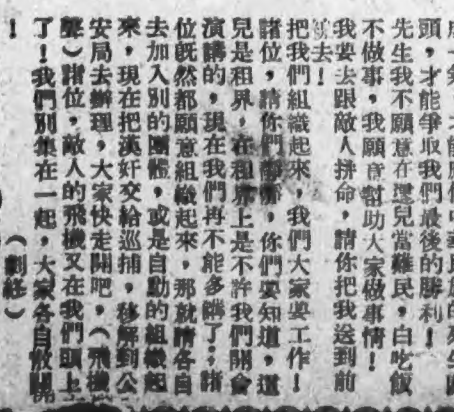 頭，才能爭取我們最後的勝利！
先生我不願意在這兒當難民，白吃飯
不做事，我願意幫助大家做事情！
我要去跟敵人拼命，請你把我送到前
去！
把我們組織起來，我們大家要工作！
諸位，請你們，你們要知道，這
兒是租界，在租界上是不許我們開會
演講的，現在我們再不能多講了，諸
位旣然都願意組織起來，那就請各自
去加入別的團體，或是自動的組織起
來，現在把漢奸交給巡捕，移解到公
安局去辦理，大家快走開吧，（飛機
聲）諸位，敵人的飛機又在我們頭上
了！我們別集在一起，大家各自散開
！
（劇終）